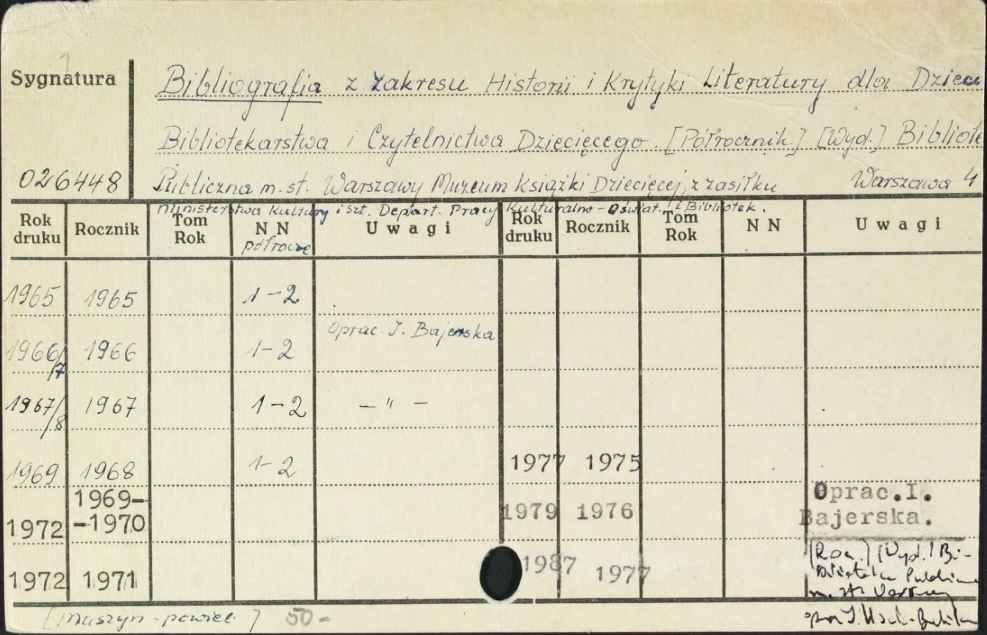 Sygnatura
Bibliografia z zakresu Historii i Krytyki Literatury dla Dzieci
Bibliotekarstwa i Czytelnictwa Dziecięcego. [Półrocznik.] [Wyd.] Bibliote
026448 Publiczna m. st. Warszawy Muzeum Książki Dziecięcej, z zasiłku Warszawa 4
Ministerstwa Kultury i Szt. Depart. Pracy Kulturalno-Oświat. i Bibliotek.
Rok druku Rocznik Tom Rok NN Uwagi Rok druku Rocznik Tom Rok NN Uwagi
półrocze
1965 1965 1-2
Oprac. I. Bajerska
1966/7 1966 1-2
1967/8 1967 1-2 - " -
1969 1968 1-2 1977 1975
1972 1969--1970 1979 1976 Oprac.I. Bajerska.
1972 1971 1987 1977 [Roc.] [Wyd.] Bi-
[Maszyn. powiel.] 50-